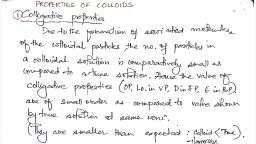 PROPERTIES OF COLLOIDS
① Colligative properties
Due to the formation of associated molecules
of the colloidal particles the no. of particles in
a colloidal solution is comparatively small as
compared to a true solution. Hence the value of
colligative properties (OP, Lo. in VP, D in F.P, E in B.P)
are of small order as compared to value shown
by true solution at same conc.
They are smaller than expected : colloid < True